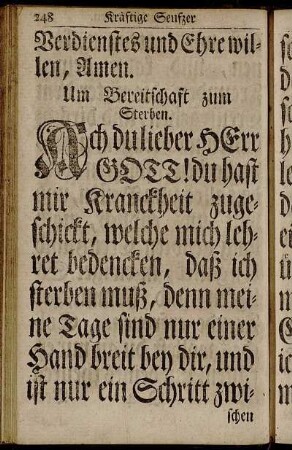 248 Kräftige Seufzer
Verdienstes und Ehre wil-
len, Amen.
Um Bereitschaft zum
Sterben.
Ach du lieber HErr
GOTT! du hast
mir Kranckheit zuge-
schickt, welche mich leh-
ret bedencken, daß ich
sterben muß, denn mei-
ne Tage sind nur einer
Hand breit bey dir, und
ist nur ein Schritt zwi-
schen